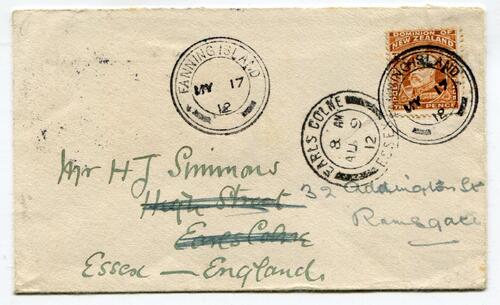 DOMINION OF
NEW ZEALAND
PENCE
FANNING ISLAND
17
12
FANNING ISLAND
17
12
EARLS COLNE
8 AM
AU 9
12
ESSEX
Mr H J Simmons
High Street
Earls Colne
Essex — England.
32 Addington St
Ramsgate